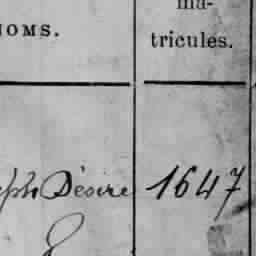 NOMS.
ma-
tricules.
eph Désiré 1647